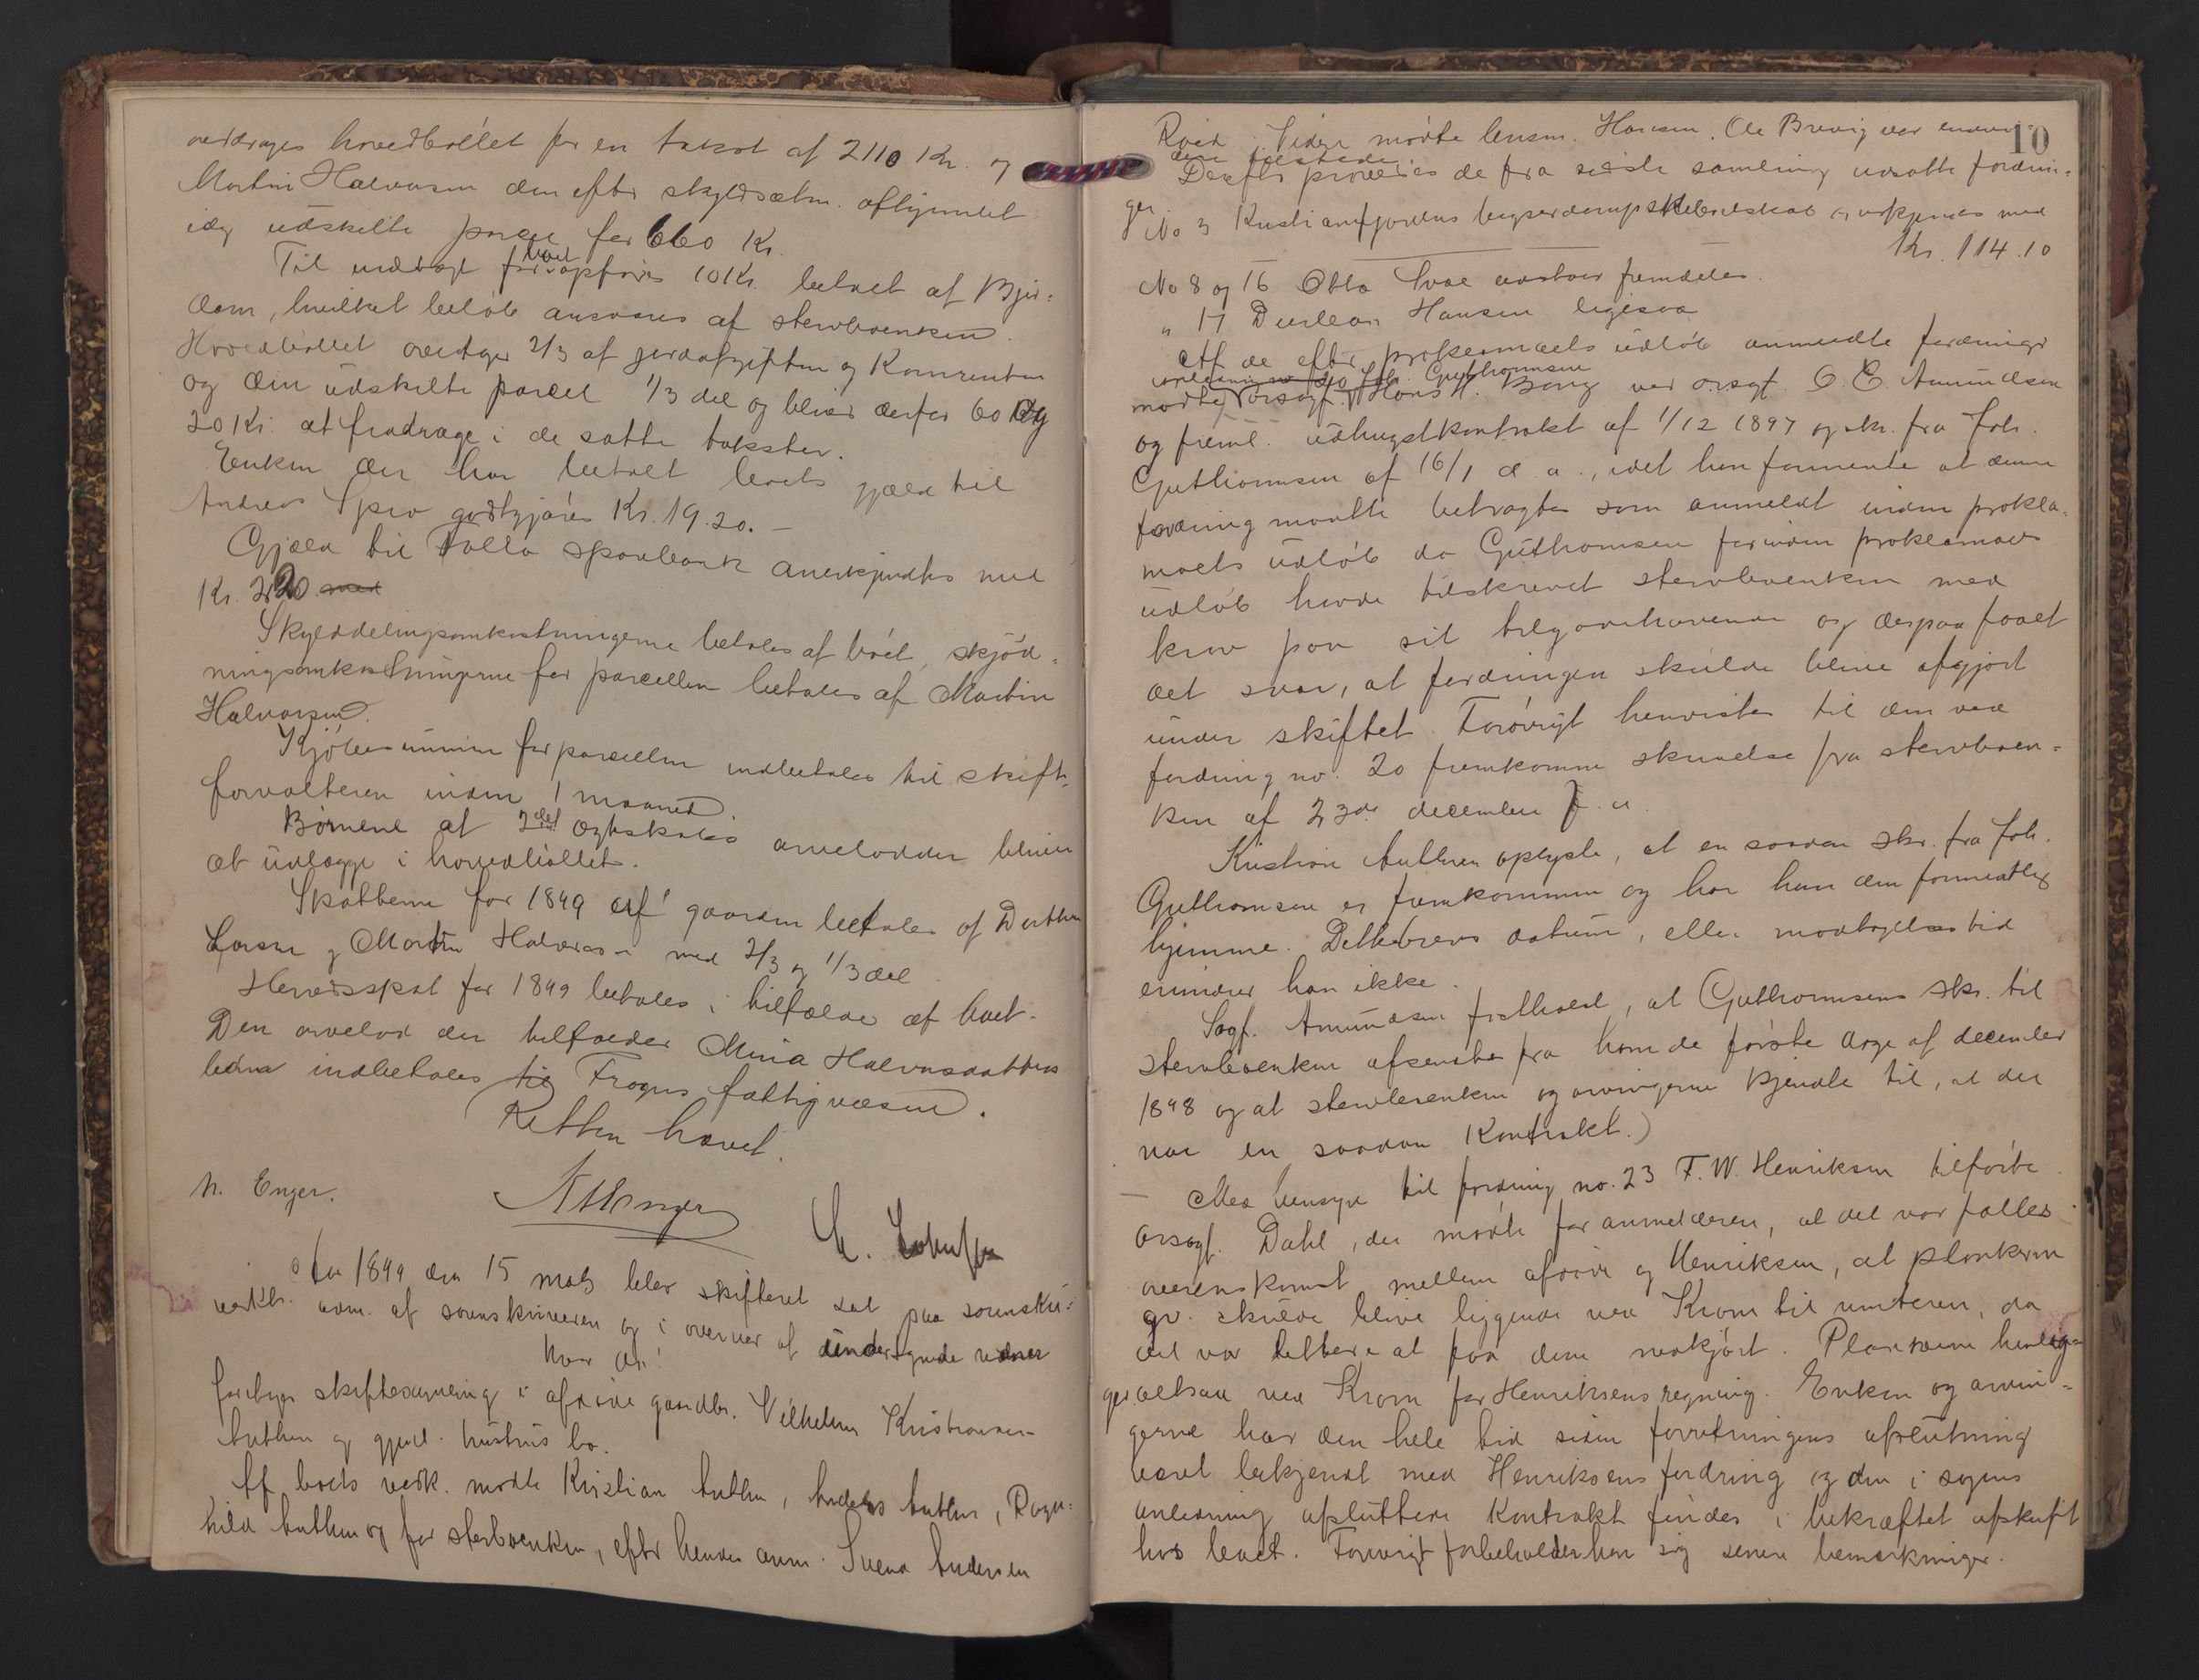 overdrages hovedbøllet for en takst af 2110 Kr. og
Martin Halvorsen den efter skyldsætn. aflyendet
idag udskilte parcel for 660 Kr.
Til indtægt for boet opføres 10 Kr. betalt af Bjør-
dam, hvilket beløb ansvares af stervboenken.
Hovedbøllet overtager 2/3 af jordafgiften og Kornrenten
og den udskilte parcel 1/3 del og bliver derfor 60 og
20 Kr. at fradrage i de satte takster.
Enken der har betalt boets gjæld til
Andreas Spro godtgjøres Kr. 19.20. -
Gjæld til Follo sparbank anerkjendtes med
Kr. 220 med
Skylddelingsomkostningerne betales af boet, skjød-
ningsomkostningerne for parcellen betales af Martin
Halvorsen.
Kjøbesummen for parcellen indbetales til skift-
forvalteren inden 1 maaned.
Børnene af 2det ægteskabs arvelodder bliver
at udlægge i hovedbøllet.
Skatterne for 1899 af gaarden betales af Dorthea
Larsen og Martin Halvorsen med 2/3 og 1/3 del
Herredsskat for 1899 betales i tilfælde af boet.
Den arvelod der tilfalder Mina Halvorsdatters
børn indbetales til Frogns fattigvæsen.
Retten hævet.
N. Enger.
Aar 1899 den 15 mars blev skifteret sat paa sorenskri-
verktr. adm. af sorenskriveren og i overvær af undertegnede vidner
hvor da:
foretoges skiftesamling i afdøde gaardbr. Vilhelm Kristiansen
Anthun og gjenl. hustrus bo.
Af boets vedk. mødte Kristian Anthun, Anders Anthun, Ragn-
hild Anthun og for sterboenken, efter hendes anm. Svend Andersen
10
Roed. Videre mødte lensm. Hansen. Ole Brevig var endvi-
dere tilstede
Derefter prøvedes de fra sidste samling udsatte fordrin-
ger.
No 3 Kristianiafjordens teglværksdampskibsselskab og vedkjendes med
Kr. 114.10
No 8 og 16 Otto Svae udstaar fremdeles.
" 17 Hansen ligesaa
Af de efter proklamaets udløb anmeldte fordringer
anledning no 20 Joh. Guthormsen
mødte orsagf. Hans H. Berg ved orsgf. O. E. Amundsen
og freml. udhugstkontrakt af 1/12 1897 og skr. fra Joh.
Guthormsen af 16/1 d. a., idet han formente at denne
fordring maatte betragtes som anmeldt inden prokla-
maets udløb da Guthormsen forinden proklamaets
udløb havde tilskrevet stervboenken med
krav paa sit tilgodehavende og derpaa faaet
det svar, at fordringen skulde blive afgjort
under skiftet. Forøvrigt henvistes til den ved
fordring no. 20 fremkomne skrivelse fra stervboen-
ken af 23de december f. a.
Kristian Anthun oplyste, at en saadan skr. fra Joh.
Guthormsen er fremkommen og har han den formentlig
hjemme. Dettebrevs datum, eller modtagelsestid
erindrer han ikke.
Sagf. Amundsen fastholdt, at Guthormsens skr. til
stervboenken afsendtes fra ham de første dage af december
1898 og at stervboenken og arvingerne kjendte til, at der
var en saadan kontrakt.)
- Med hensyn til fordring no. 23 F. W. Henriksen tilførte
orsagf. Dahl, der mødte for anmelderen, at det var fælles
overenskomst mellem afdøde og Henriksen, at plankerne
gr. skulde blive liggende ved Krom til vinteren, da
det var lettere at faa dem nedkjørt. Plankerne henlig-
ger altsaa ved Krom for Henriksens regning. Enken og arvin-
gerne har den hele tid siden forretningens afslutning
været bekjendt med Henriksens fordring og den i sagens
anledning afsluttede kontrakt findes i bekræftet afskrift
hos boet. Forøvrigt forbeholder han sig senere bemærkninger.